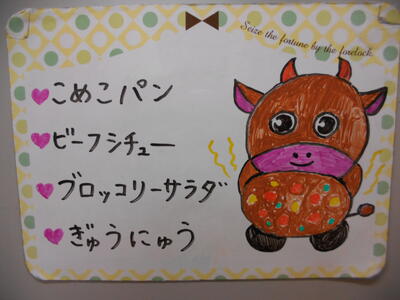 Seize the fortune by the forelock.
こめこパン
ビーフシチュー
ブロッコリーサラダ
ぎゅうにゅう